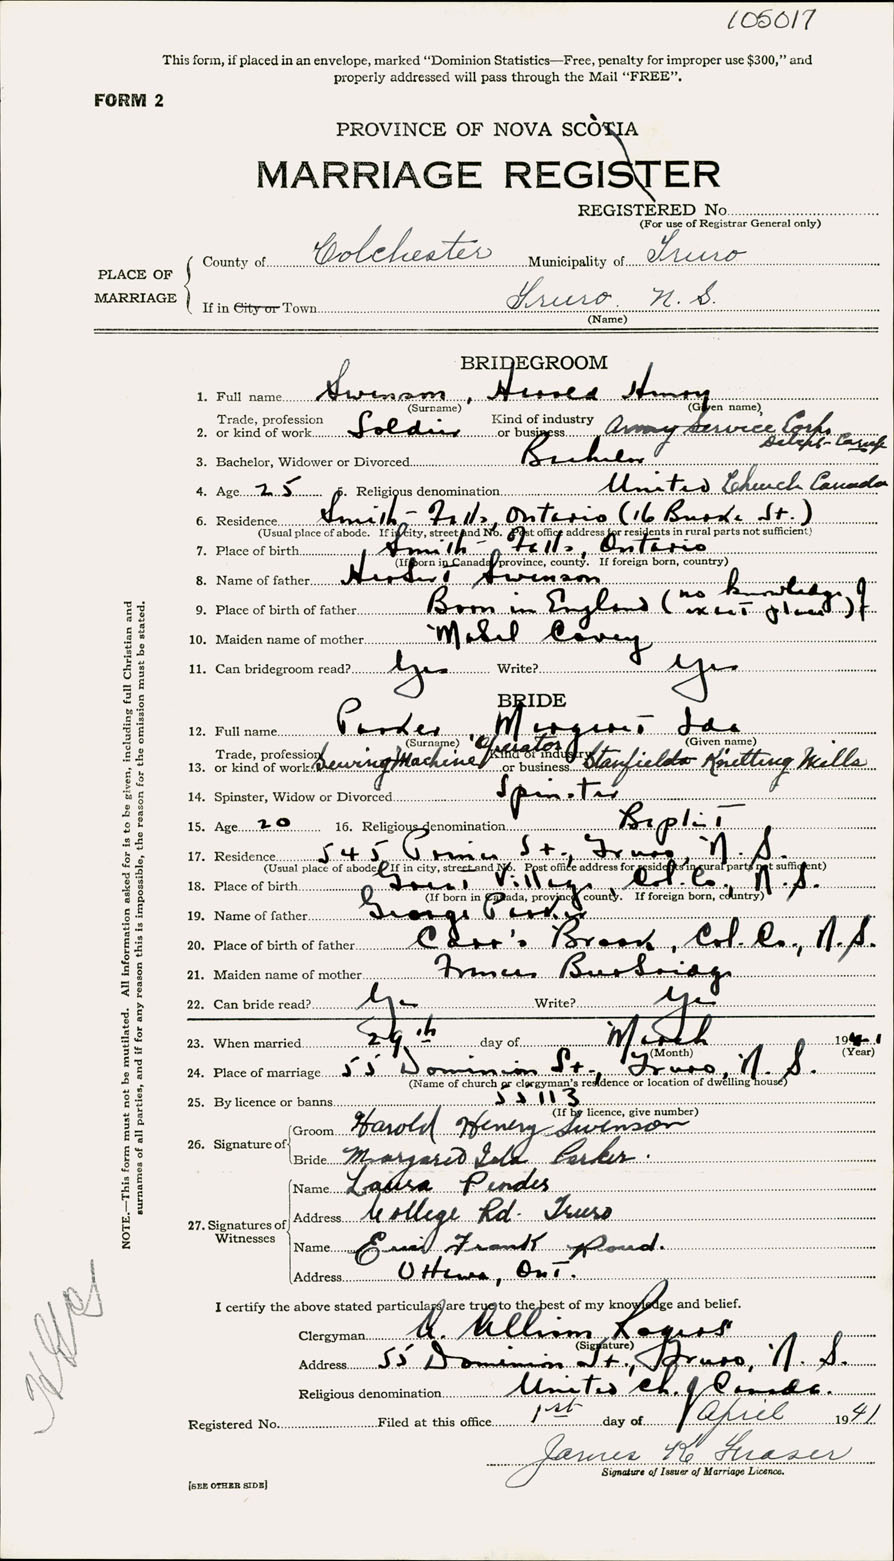 105017
This form, if placed in an envelope, marked "Dominion Statistics—Free, penalty for improper use $300," and
properly addressed will pass through the Mail "FREE".
FORM 2
PROVINCE OF NOVA SCOTIA
MARRIAGE REGISTER
REGISTERED No.
(For use of Registrar General only)
PLACE OF MARRIAGE
County of Colchester Municipality of Truro
If in City or Town Truro. N. S.
(Name)
BRIDEGROOM
1. Full name Swenson, Harold Henry
(Surname) (Given name)
2. Trade, profession or kind of work Soldier Kind of industry or business Army Service Corps
Debert Camp
3. Bachelor, Widower or Divorced Bachelor
4. Age 25 5. Religious denomination United Church Canada
6. Residence Smith-Falls, Ontario (16 Burke St.)
(Usual place of abode. If in city, street and No. Post office address for residents in rural parts not sufficient)
7. Place of birth Smith-Falls, Ontario
(If born in Canada, province, county. If foreign born, country)
8. Name of father Herbert Swenson
9. Place of birth of father Born in England (no knowledge of exact place)
10. Maiden name of mother Mabel Covey
11. Can bridegroom read? Yes Write? Yes
BRIDE
12. Full name Parker, Margaret Ida
(Surname) (Given name)
13. Trade, profession or kind of work Sewing Machine Operator Kind of industry or business Stanfields Knitting Mills
14. Spinster, Widow or Divorced Spinster
15. Age 20 16. Religious denomination Baptist
17. Residence 545 Prince St., Truro, N. S.
(Usual place of abode. If in city, street and No. Post office address for residents in rural parts not sufficient)
18. Place of birth Great Village, Col. Co., N. S.
(If born in Canada, province, county. If foreign born, country)
19. Name of father George Parker
20. Place of birth of father Carr's Brook, Col. Co., N. S.
21. Maiden name of mother Frances Burbridge
22. Can bride read? Yes Write? Yes
23. When married 29th day of March 1941
(Month) (Year)
24. Place of marriage 55 Dominion St., Truro, N. S.
(Name of church or clergyman's residence or location of dwelling house)
25. By licence or banns 55113
(If by licence, give number)
26. Signature of Groom Harold Henry Swenson
Bride Margaret Ida Parker.
27. Signatures of Witnesses
Name Laura Pinder
Address College Rd. Truro
Name Frank
Address Ottawa, Ont.
I certify the above stated particulars are true to the best of my knowledge and belief.
Clergyman William Rogers
(Signature)
Address 55 Dominion St., Truro, N. S.
Religious denomination United Ch. of Canada.
Registered No. Filed at this office 1st day of April 1941
James K Fraser
Signature of Issuer of Marriage Licence.
[SEE OTHER SIDE]
NOTE.—This form must not be mutilated. All information asked for is to be given, including full Christian and
surnames of all parties, and if for any reason this is impossible, the reason for the omission must be stated.